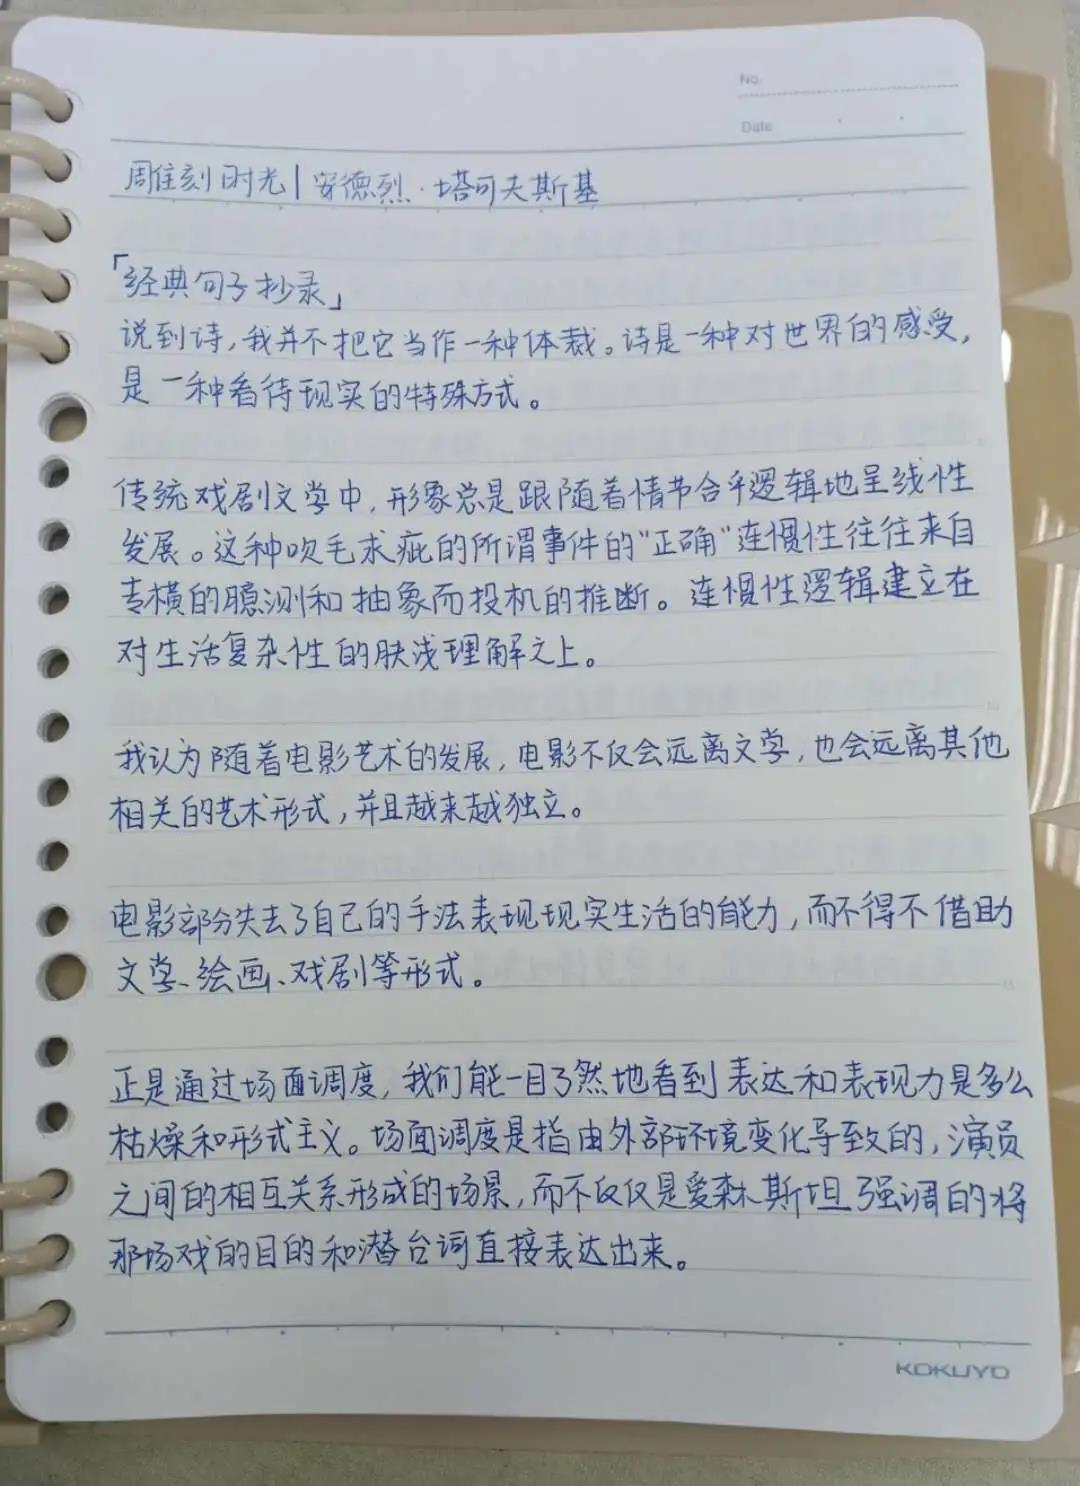 No.
Date
雕刻时光|安德烈·塔可夫斯基
「经典句子抄录」
说到诗,我并不把它当作一种体裁。诗是一种对世界的感受,
是一种看待现实的特殊方式。
传统戏剧文学中,形象总是跟随着情节合乎逻辑地呈线性
发展。这种吹毛求疵的所谓事件的"正确"连惯性往往来自
专横的臆测和抽象而投机的推断。连惯性逻辑建立在
对生活复杂性的肤浅理解之上。
我认为随着电影艺术的发展,电影不仅会远离文学,也会远离其他
相关的艺术形式,并且越来越独立。
电影部分失去了自己的手法表现现实生活的能力,而不得不借助
文学、绘画、戏剧等形式。
正是通过场面调度,我们能一目了然地看到表达和表现力是多么
枯燥和形式主义。场面调度是指由外部环境变化导致的,演员
之间的相互关系形成的场景,而不仅仅是爱森斯坦强调的将
那场戏的目的和潜台词直接表达出来。
KOKUYO